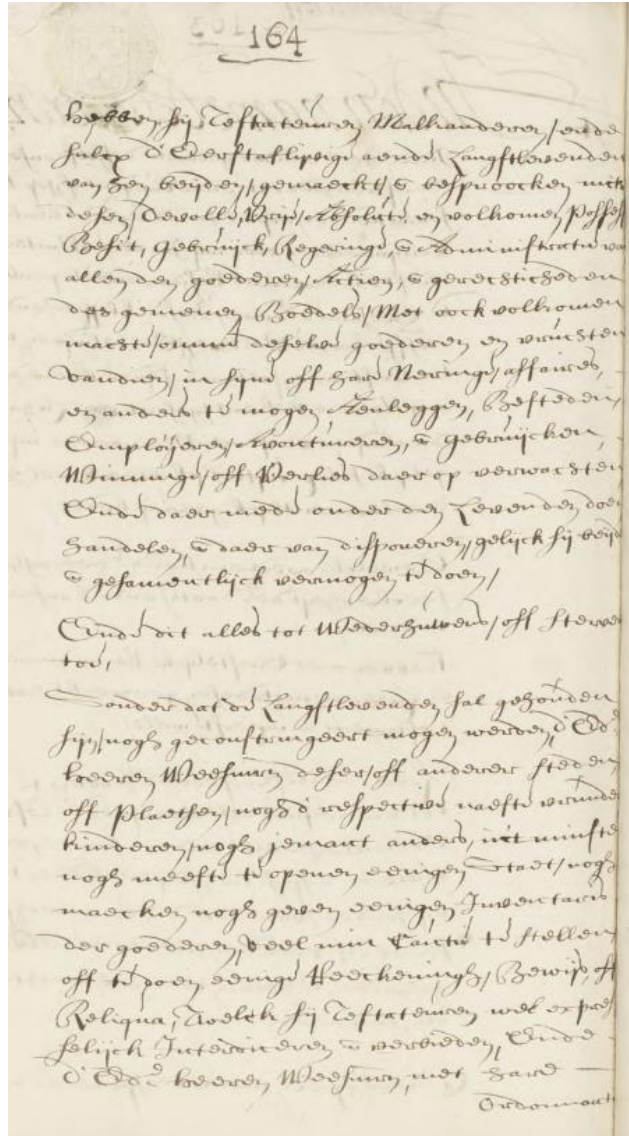 164
hebben sij Testateuren Malkanderen, ende
sulcx d' Eerstaflivige aende Langstlevenden
van hen beijden, gemaeckt, & besproocken mits
desen, de volle, Vrije, Absolute, en volkomen Posses
Besit, Gebruijck, Regeringe, & Administratie va
allen den goederen, Actien, & gerechticheden
des gemenen Boedels, Met oock volkomen
macht, omme deselve goederen en vruchten
vandien, in sijne off hare Neringe, affaires,
en anders te mogen Aenleggen, Besteden,
Employeren, Avontureren, & gebruijcken,
Winninge, off Verlies daer op verwachten
Ende daer mede onder den Levenden doen
handelen, & daer van disponeren, gelijck sij beijd
& gesamentlijck vermogen te doen,
Ende dit alles tot Wederhuwens, off sterve
toe,
Sonder dat de Langstlevenden sal gehouden
sijn, nogh geconstringeert mogen werden, d' Ed.e
heeren Weesmrn deser, off anderer steden
off Plaetsen, nogh d' respective naeste vrunde
kinderen, nogh jemant anders, int minste
nogh meeste te openen eenigen Staet, nogh
maecken nogh geven eenigen Inventaris
der goederen, veel min Cautie te stellen,
off te doen eenige Reeckeningh, Bewijs, off
Reliqua, Twelck sij Testateuren wel expres
selijck Interdiceren & verbieden, Ende
d' Ed.e heeren Weesmrn, met hare
Ordonnant